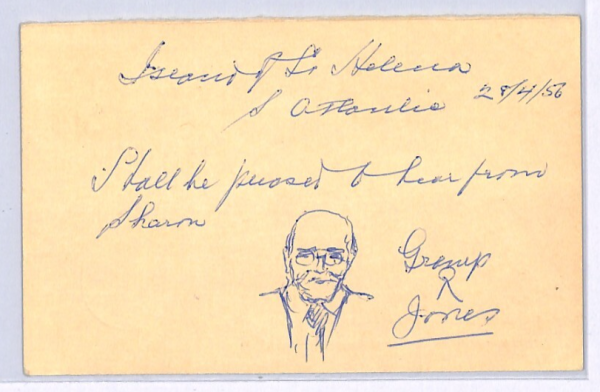 Island of St Helena
S Atlantic 28/4/56
Shall be pleased to hear from
Sharon
Gramp
R
Jones